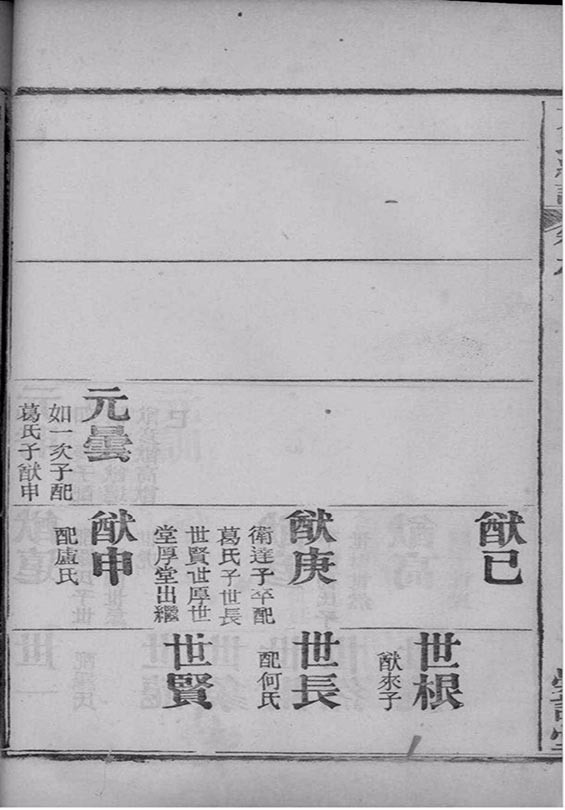 元曇
如一次子配
葛氏子猷申
猷已
猷庚
衛達子卒配
葛氏子世長
世賢世厚世
堂厚堂出繼
猷申
配盧氏
世根
猷來子
世長
配何氏
世賢